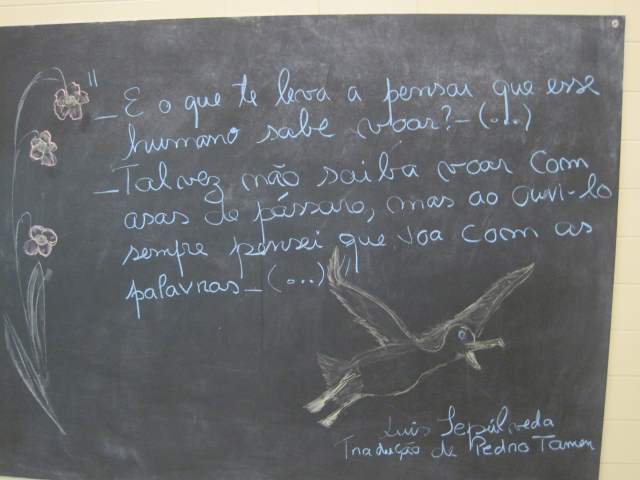 "
_ E o que te leva a pensar que esse
humano sabe voar? _ (...)
_ Talvez não saiba voar com
asas de pássaro, mas ao ouvi-lo
sempre pensei que voa com as
palavras _ (...)"
Luis Sepúlveda
Tradução de Pedro Tamen